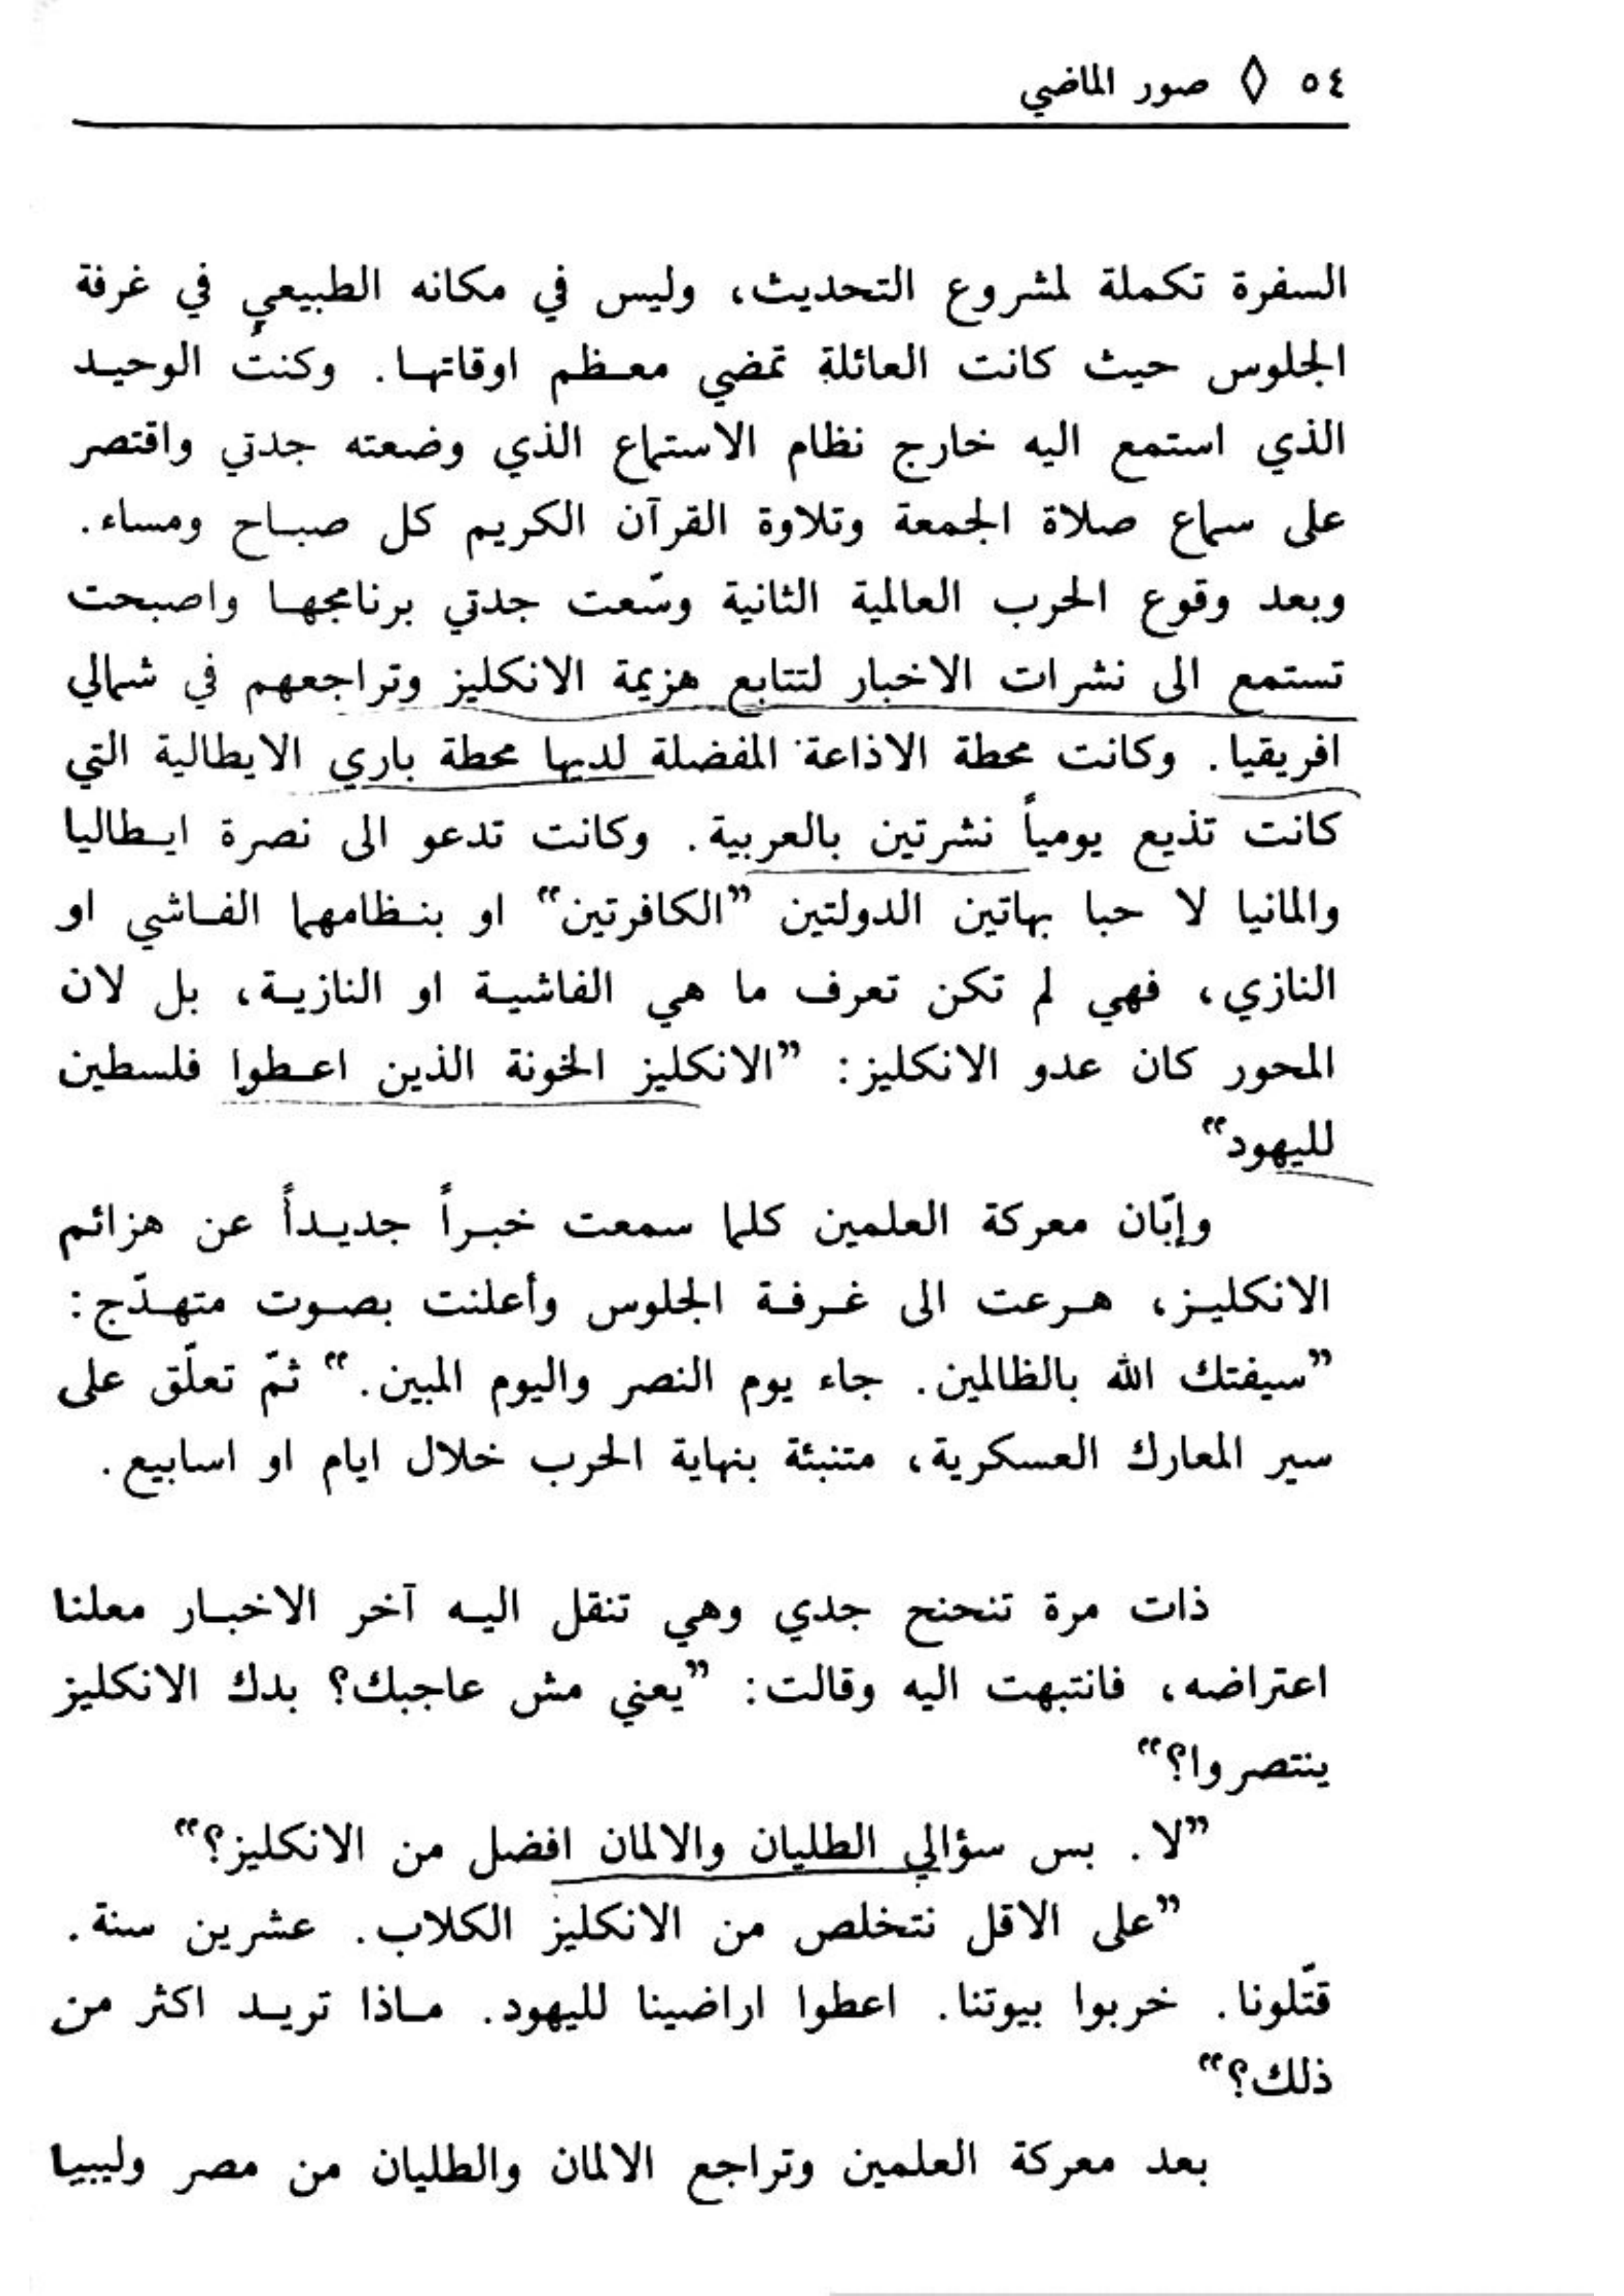 ٥٤ ◊ صور الماضي
السفرة تكملة لمشروع التحديث، وليس في مكانه الطبيعي في غرفة
الجلوس حيث كانت العائلة تمضي معظم اوقاتها. وكنتُ الوحيد
الذي استمع اليه خارج نظام الاستماع الذي وضعته جدتي واقتصر
على سماع صلاة الجمعة وتلاوة القرآن الكريم كل صباح ومساء.
وبعد وقوع الحرب العالمية الثانية وسّعت جدتي برنامجها واصبحت
تستمع الى نشرات الاخبار لتتابع هزيمة الانكليز وتراجعهم في شمالي
افريقيا. وكانت محطة الاذاعة المفضلة لديها محطة باري الايطالية التي
كانت تذيع يومياً نشرتين بالعربية. وكانت تدعو الى نصرة ايطاليا
والمانيا لا حبا بهاتين الدولتين ”الكافرتين“ او بنظامهما الفاشي او
النازي، فهي لم تكن تعرف ما هي الفاشية او النازية، بل لان
المحور كان عدو الانكليز: ”الانكليز الخونة الذين اعطوا فلسطين
لليهود“
وإبّان معركة العلمين كلما سمعت خبراً جديداً عن هزائم
الانكليز، هرعت الى غرفة الجلوس وأعلنت بصوت متهدّج:
”سيفتك الله بالظالمين. جاء يوم النصر واليوم المبين.“ ثمّ تعلّق على
سير المعارك العسكرية، متنبئة بنهاية الحرب خلال ايام او اسابيع.
ذات مرة تنحنح جدي وهي تنقل اليه آخر الاخبار معلنا
اعتراضه، فانتبهت اليه وقالت: ”يعني مش عاجبك؟ بدك الانكليز
ينتصروا؟“
”لا. بس سؤالي الطليان والالمان افضل من الانكليز؟“
”على الاقل نتخلص من الانكليز الكلاب. عشرين سنة.
قتّلونا. خربوا بيوتنا. اعطوا اراضينا لليهود. ماذا تريد اكثر من
ذلك؟“
بعد معركة العلمين وتراجع الالمان والطليان من مصر وليبيا